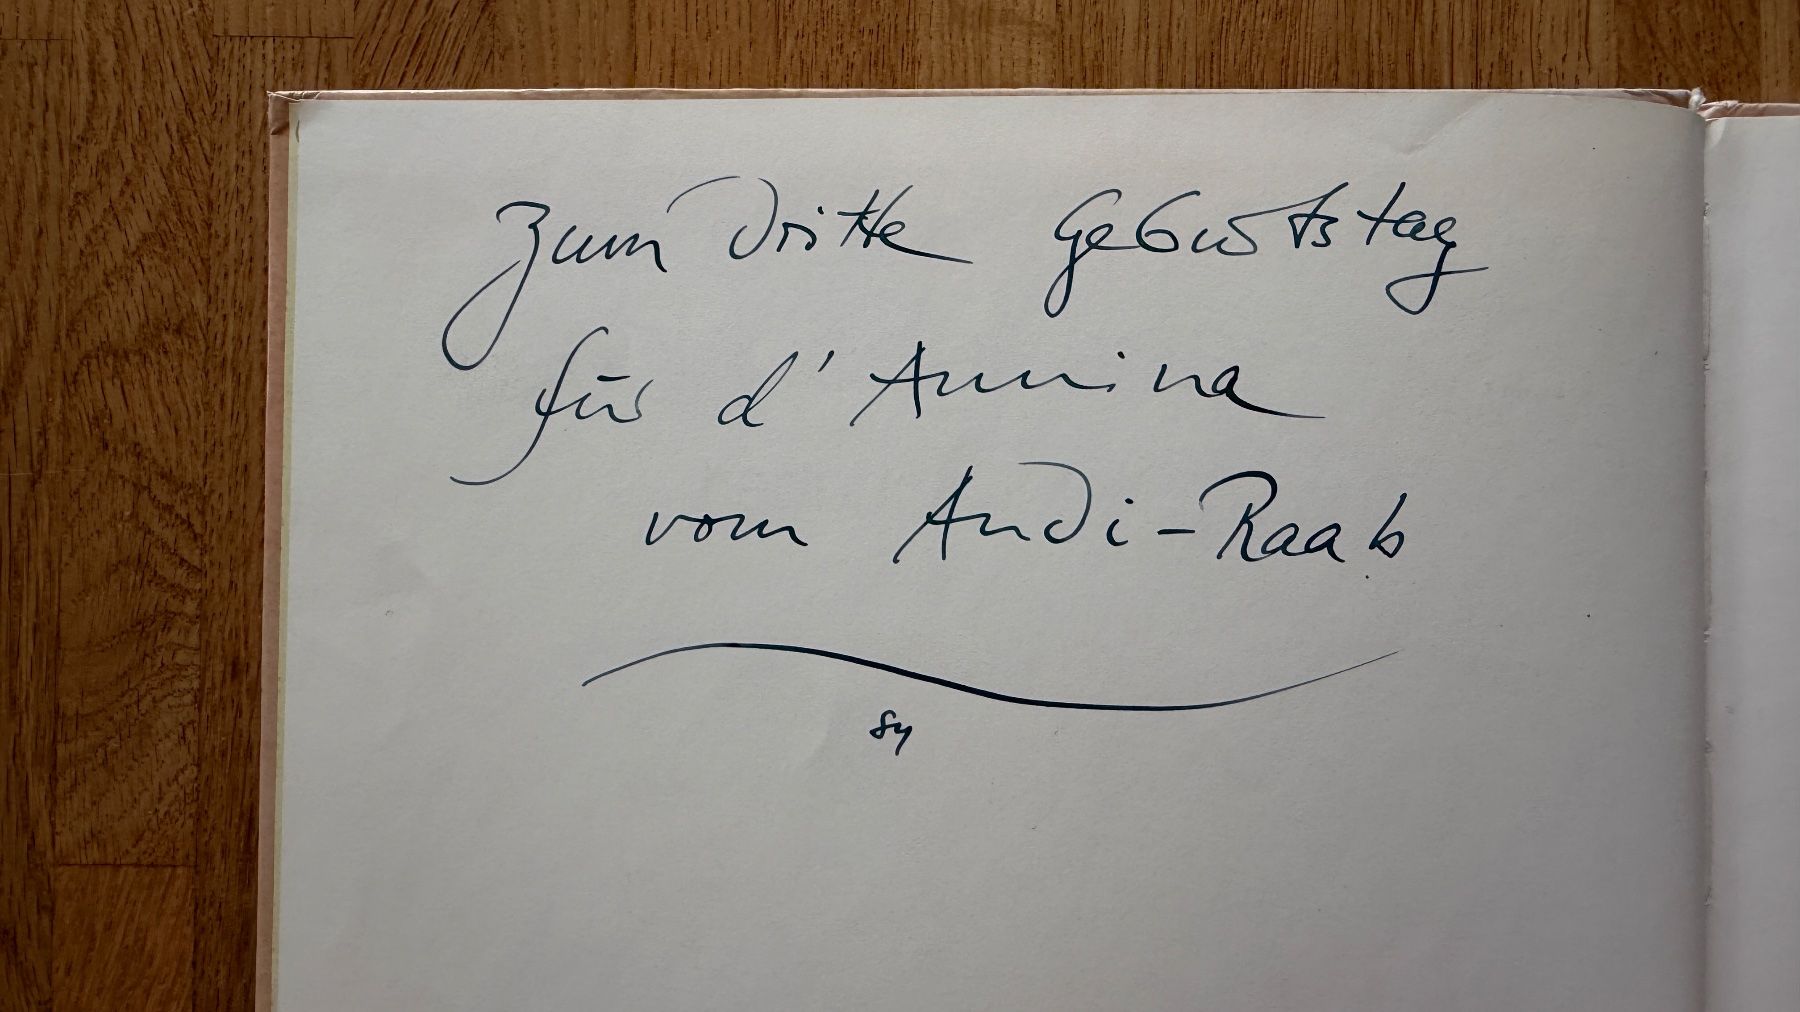 Zum dritte Geburtstag
für d'Annina
vom Andi-Raab
84